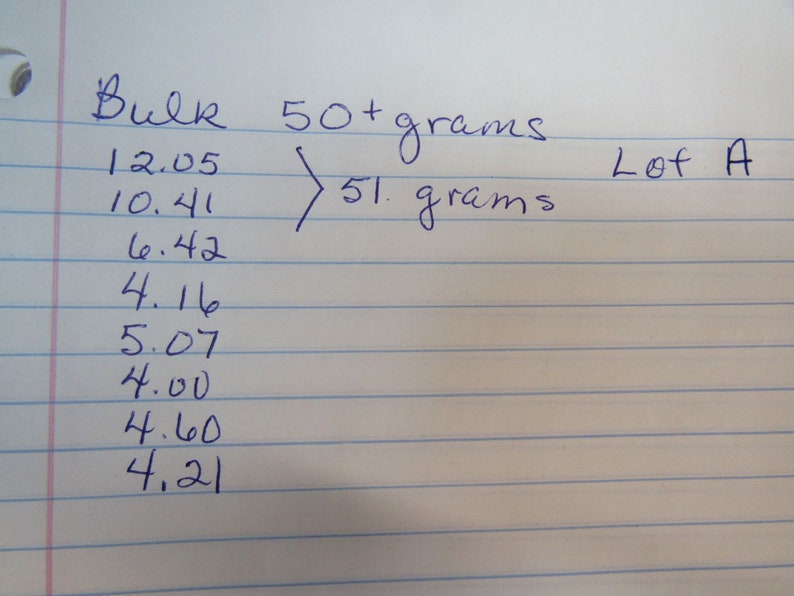 Bulk 50+ grams
12.05
Lot A
10.41
51. grams
6.42
4.16
5.07
4.00
4.60
4.21